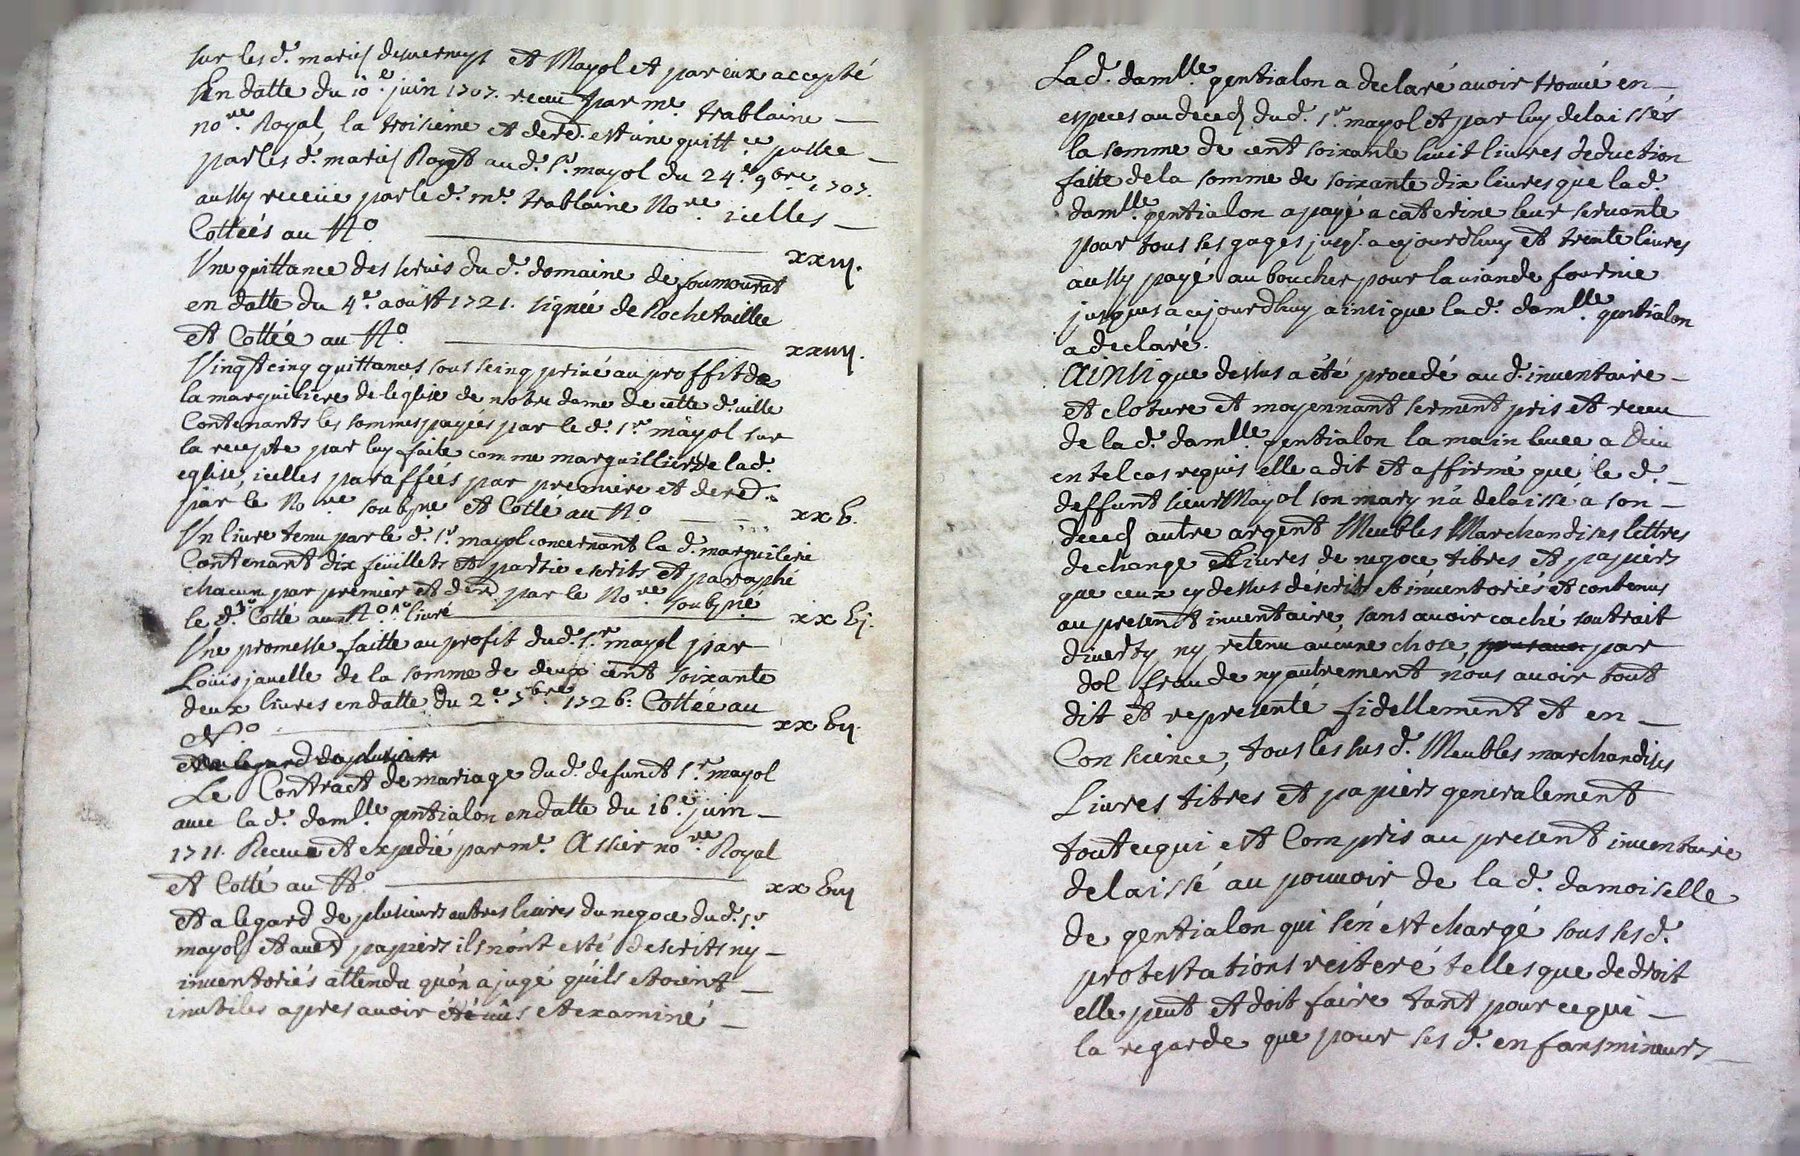 sur les d. mariés desverneys et Mayol et par eux accepté
En datte du 10e. juin 1707. receu par me. trablaine
nore. Royal, la troisieme et dere. est une quittce passee
par les d. mariés Royet au d. sr. mayol du 24e. 9bre 1707.
aussy receüe par le d. me. trablaine Nore. icelles
Cottéés au No. xxiij.
Une quittance des servis du d. domaine de soumourat
en datte du 4e. aoüst 1721. signée de Rochetaillee
et Cottée au No. xxiiij.
Vingt cinq quittances sous seing privé au proffit de
la marguiliere de leglise de notre dame de cette d. ville
Contenants les sommes payées par le d. sr. mayol sur
la recepte par luy faite comme marguillier de lad.
eglise, icelles paraffeés par premiere et dere.
par le Nore soubsne et Cotté au No. xxv.
Un livre tenu par le d. sr. mayol concernant la d. marguilerie
Contenant dix feüillets et partie escrits et paraphé
chacun par premier et der. par le Nore soubsné
le d. Cotté au No. 1o. livré xxvj.
Une promesse faitte au profit du d. sr. mayol par
Louis javelle de la somme de deux cent soixante
deux livres en datte du 2e. 7bre 1726. Cottée au
No. xxvij.
et a legard de plusieurs
Le Contract de mariage du d. defunct sr. mayol
avec la d. damlle. gentialon en datte du 16e. juin
1711. Receu et expedié par me. Assier nore Royal
et Cotté au No. xxviij
et a legard de plusieurs autres livres du negoce du d. sr
mayol et papiers ils nont esté descrits ny
inventoriés attendu quon a jugé quils etoient
inutiles apres avoir été vûs et examiné
La d. damlle gentialon a declaré avoir trouvé en
especes au deced du d. sr. mayol et par luy delaissés
la somme de cent soixante huit livres deduction
faitte de la somme de soixante dix livres que la d.
damlle. gentialon a payé a caterine leur servante
pour tous ses gages jusq. a cejourdhuy et trente livres
aussy payé au boucher pour la viande fournie
jusques a cejourdhuy ainsi que la d. damlle. gentialon
a declaré.
Ainsi que dessus a été procedé au d. inventaire
et cloture et moyennant serment pris et receu
de la d. damlle. gentialon la main levee a Dieu
en tel cas requis elle a dit et affirmé que le d.
deffunt sieur Mayol son mary n'a delaissé a son
deced autre argent Meubles Marchandises lettres
de change et Livres de negoce titres et papiers
que ceux cy dessus descrits et inventoriés et contenus
au present inventaire, sans avoir caché soutrait
diverty ny retenu aucune chose, par
dol fraude ny autrement nous avoir tout
dit et representé fidellement et en
Conscience, tous les susd. Meubles marchandises
Livres titres et papiers generalement
tout cequi est Compris au present inventaire
delaissé au pouvoir de la d. damoiselle
de gentialon qui sén est chargé sous ses d.
protestations reiteré telles que de droit
elle peut et doit faire tant pour cequi
la regarde que pour ses d. enfans mineurs